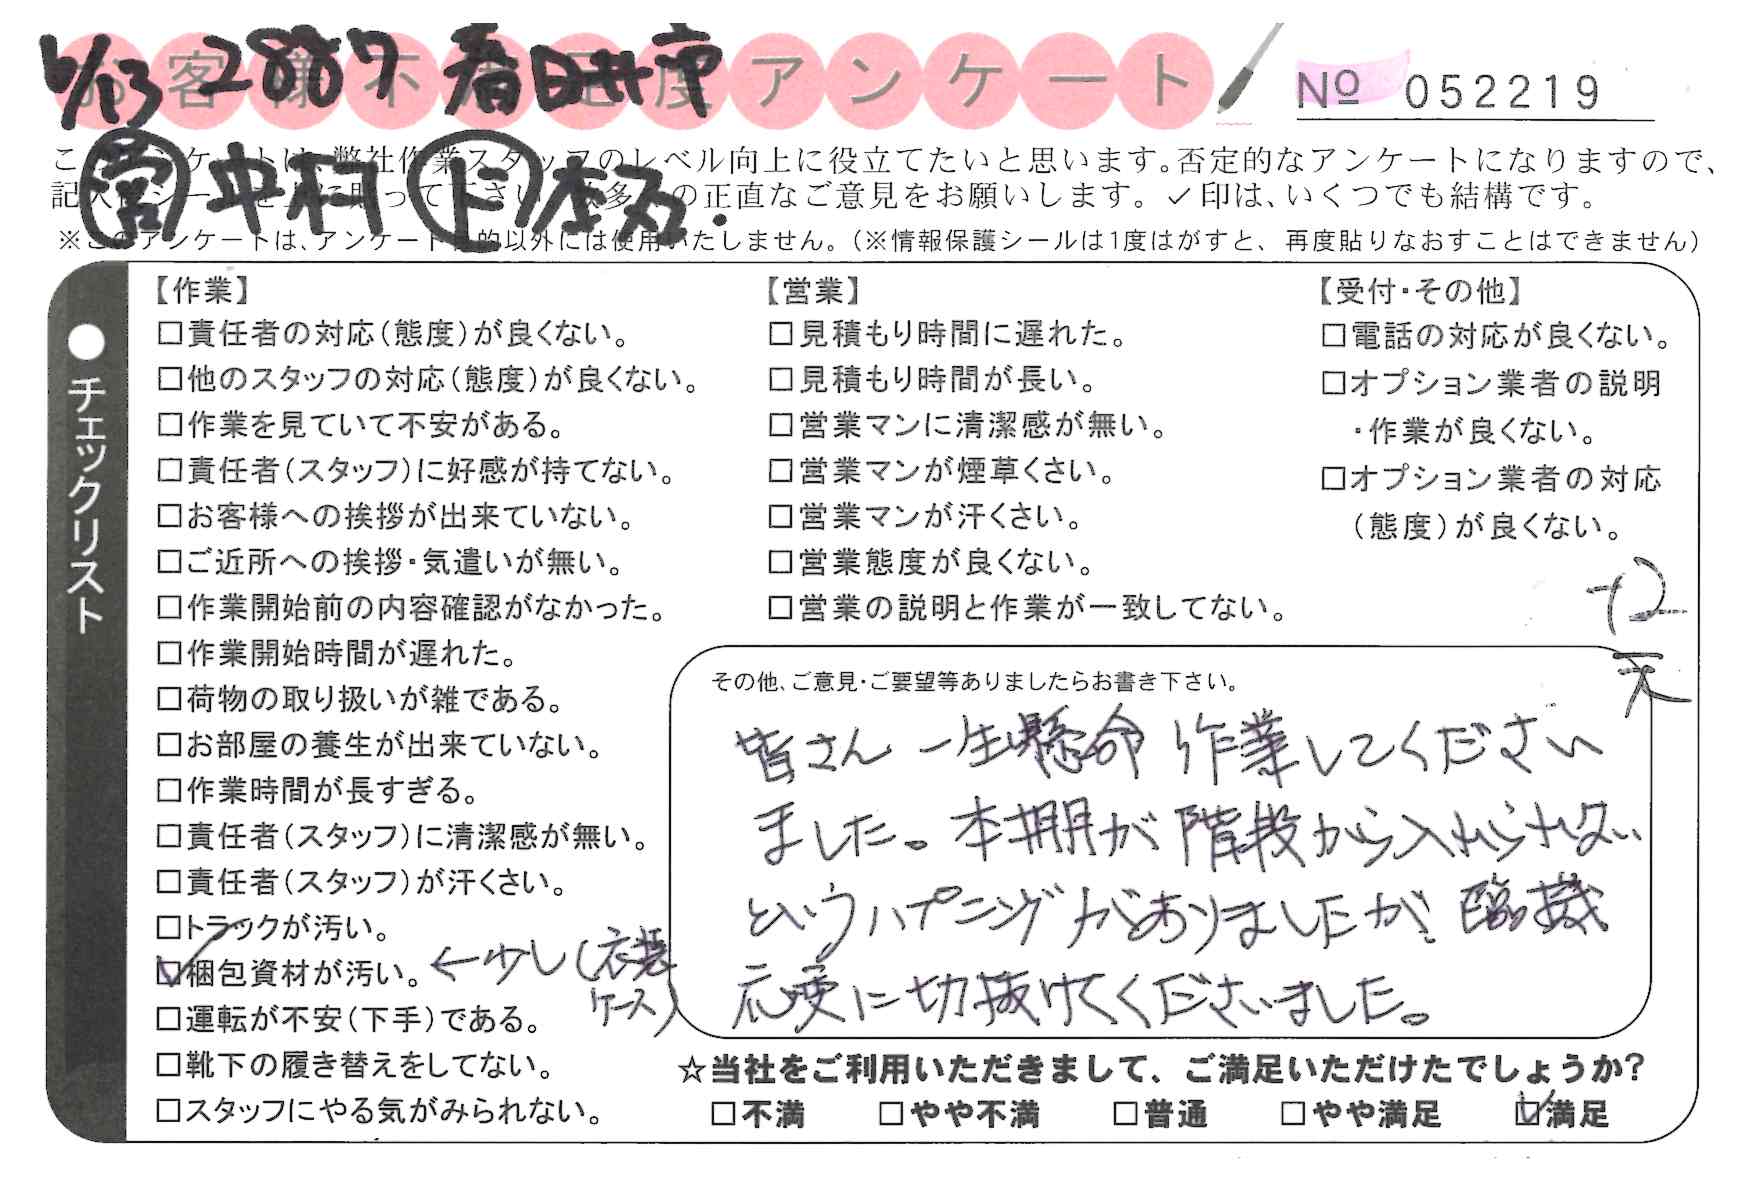 6/13 2887 春日井市
お客様不満足度アンケート
№ 052219
営 中村 ド 本丸.
このアンケートは、弊社作業スタッフのレベル向上に役立てたいと思います。否定的なアンケートになりますので、
記入後シールを上に貼って下さい。数多くの正直なご意見をお願いします。✓印は、いくつでも結構です。
※このアンケートは、アンケート目的以外には使用いたしません。(※情報保護シールは1度はがすと、再度貼りなおすことはできません)
●チェックリスト
【作業】
□責任者の対応(態度)が良くない。
□他のスタッフの対応(態度)が良くない。
□作業を見ていて不安がある。
□責任者(スタッフ)に好感が持てない。
□お客様への挨拶が出来ていない。
□ご近所への挨拶・気遣いが無い。
□作業開始前の内容確認がなかった。
□作業開始時間が遅れた。
□荷物の取り扱いが雑である。
□お部屋の養生が出来ていない。
□作業時間が長すぎる。
□責任者(スタッフ)に清潔感が無い。
□責任者(スタッフ)が汗くさい。
□トラックが汚い。
☑梱包資材が汚い。←少し(衣装
ケース)
□運転が不安(下手)である。
□靴下の履き替えをしてない。
□スタッフにやる気がみられない。
【営業】
□見積もり時間に遅れた。
□見積もり時間が長い。
□営業マンに清潔感が無い。
□営業マンが煙草くさい。
□営業マンが汗くさい。
□営業態度が良くない。
□営業の説明と作業が一致してない。
【受付・その他】
□電話の対応が良くない。
□オプション業者の説明
・作業が良くない。
□オプション業者の対応
(態度)が良くない。
+2
天
その他、ご意見・ご要望等ありましたらお書き下さい。
皆さん 一生懸命 作業してください
ました。本棚が階段から入れられない
というハプニングがありましたが、臨機
応変に切抜けてくださいました。
☆当社をご利用いただきまして、ご満足いただけたでしょうか?
□不満 □やや不満 □普通 □やや満足 ☑満足